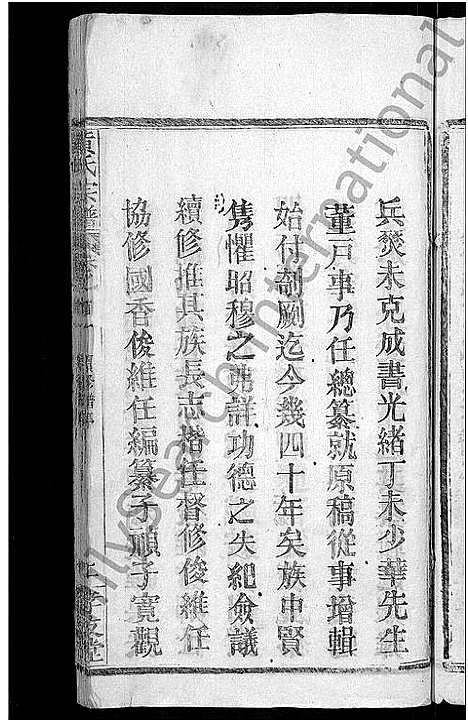 兵燹未克成書光緒丁未少華先生
董戸事乃任總纂就原稿從事增輯
始付剞劂迄今幾四十年矣族中賢
雋懼昭穆之弗詳功德之失紀僉議
續修推其族長志楷任督修俊維任
協修國香俊維任編纂子順子寬觀
黃氏宗譜
孝友堂
ilysearch International